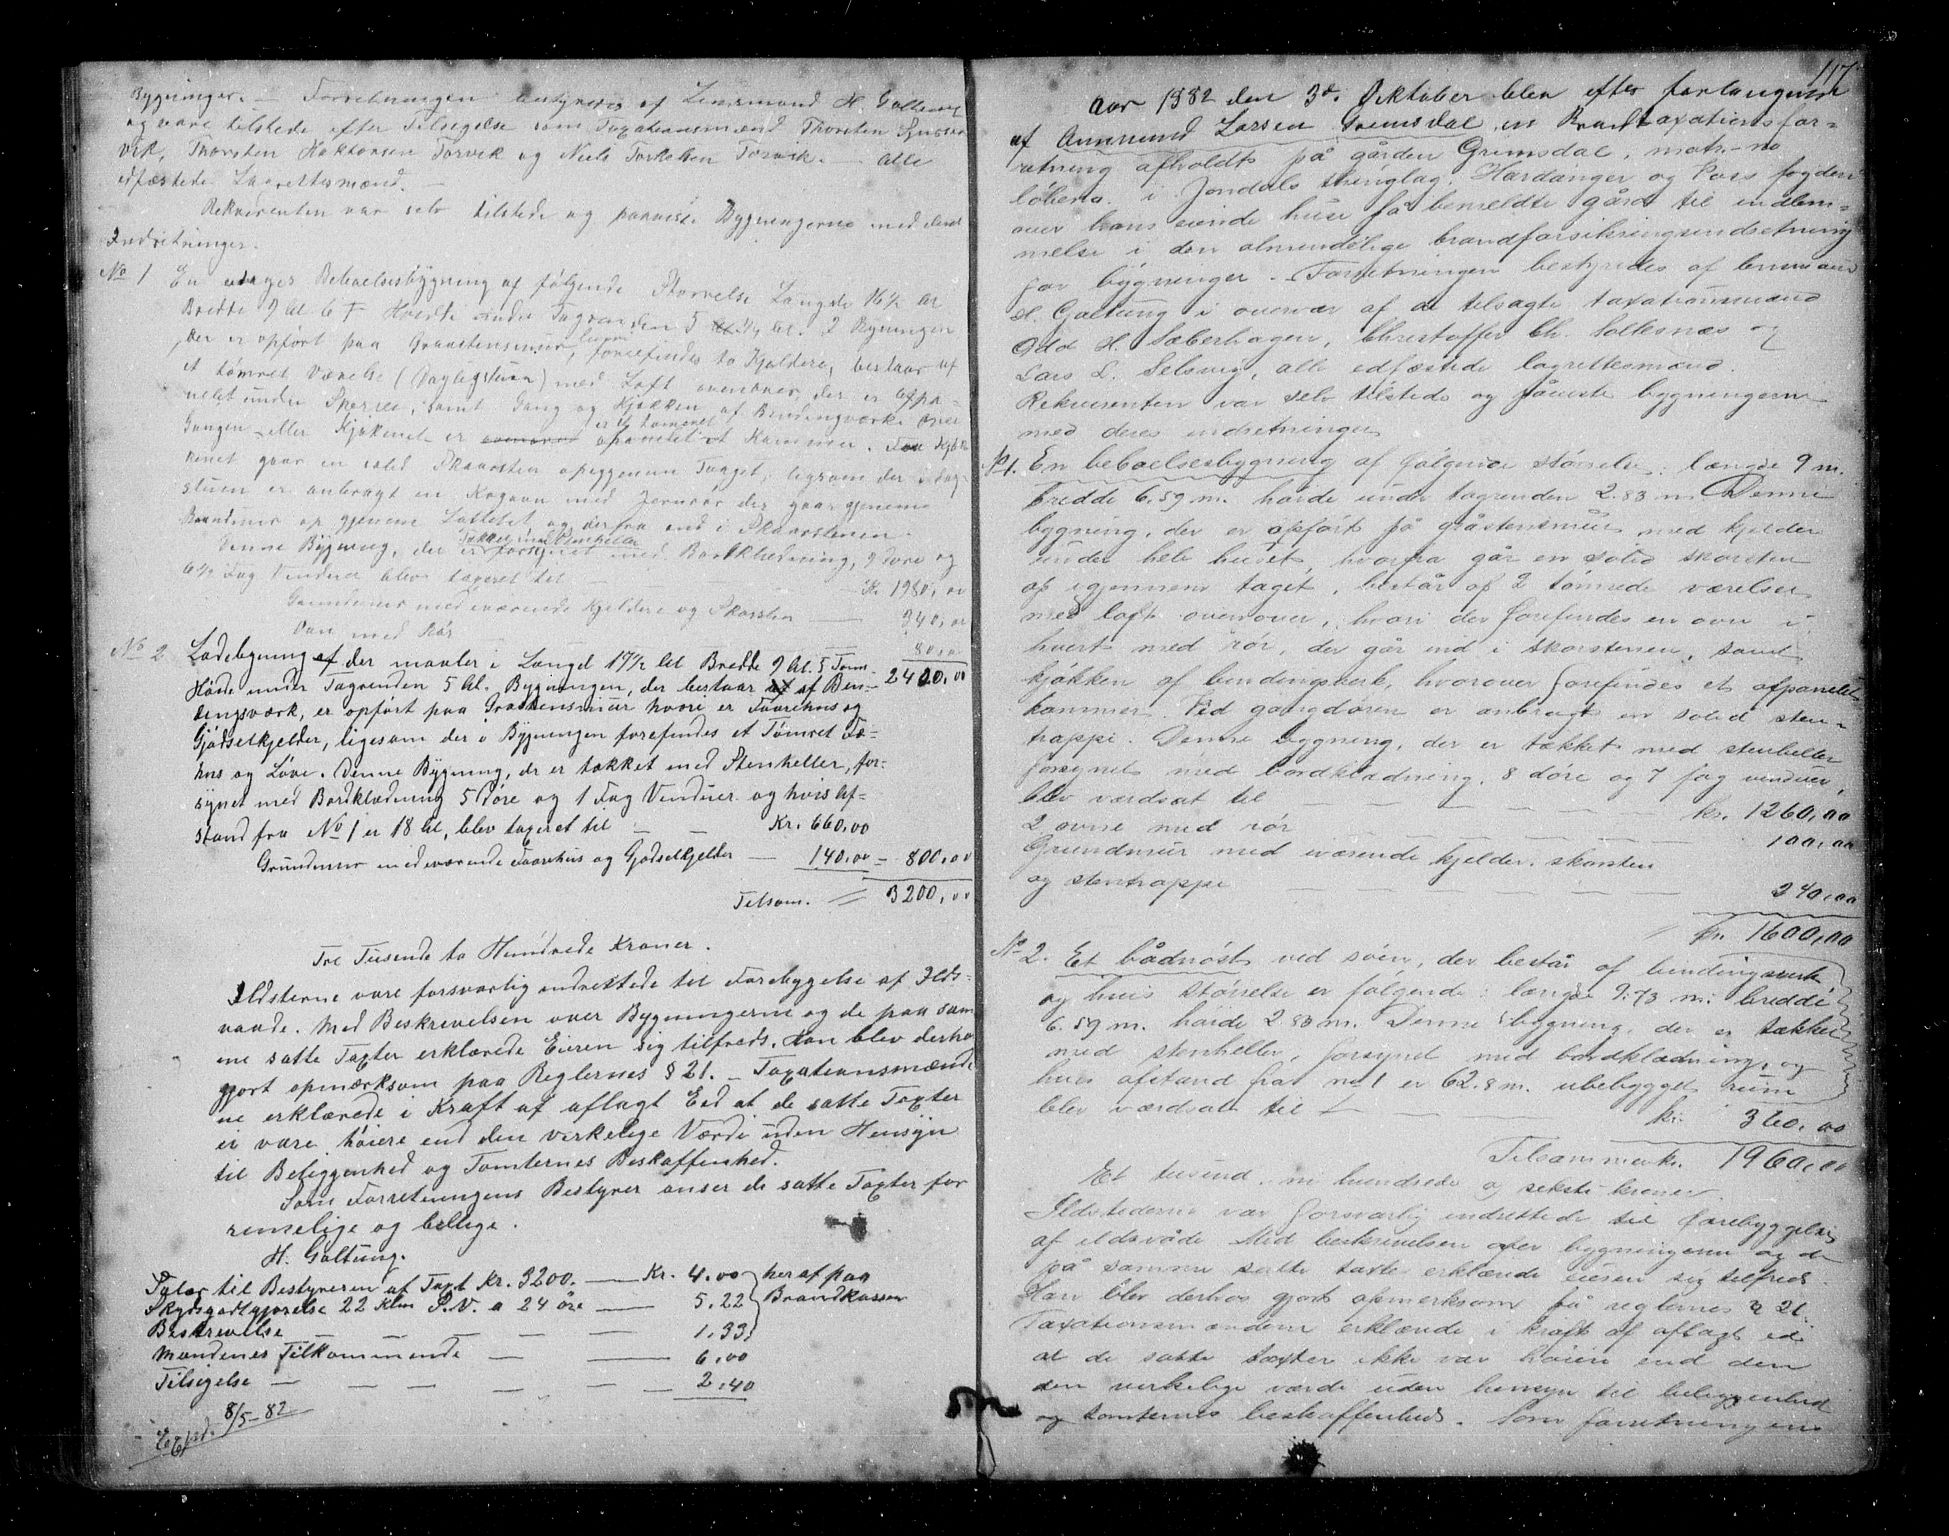 Bygninger. — Forretningen bestyredes af Lensmand H. Galtung
og vare tilstede efter Tilsigelse som Taxationsmænd Thorsten
vik, Thorsten Haktorsen Torvik og Niels Torkelsen Torvik. — alle
edfæstede Laugrettesmænd. —
Rekvirenten var selv tilstede og paaviste Bygningerne med deres
Indretninger.
No 1 En etages Beboelsesbygning af følgende Størrelse Længde 16½ Al.
Bredde 9 Al. 6 T. Høide under Tagrenden 5 ¾ Al. Bygningen
der er opført paa Graastensmuur, hvori forefindes to Kjeldere, bestaar af
et tømret Værelse (Dagligstuen) med Loft ovenover der er afpa-
nelet under Sperrer, samt Gang og Kjøkken af Bindingsværk. Over
Gangen eller Kjøkenet er et tømret afpanelet Kammer. Fra Kjøk-
kenet gaar en solid Skaarsten opigjennem Taget, ligesom der i Dag-
stuen er anbragt en Kogeovn med Jernrør der gaar gjennem
Brandmur op gjenem Loftet og derfra ind i Skaarstenen.
Denne Bygning, der er tækket med Stenheller forsynet med Bordklædning, 9 Døre og
6½ Fag Vinduer blev taxeret til — Kr. 1980,00
Grundmur med iværende Kjeldere og Skorsten — 340,00
Ovn med Rør 80,00
2400,00
No 2 Ladebygning der maaler i Længd 17½ Al. Bredde 9 Al. 5 Tom.
Høide under Tagrenden 5 Al. Bygningen, der bestaar af Bin-
dingsværk, er opført paa Graastensmuur hvori er Faarehus og
Gjødselkjelder, ligesom der i Bygningen forefindes et Tømret Fæ-
hus og Løve. Denne Bygning, der er tækket med Stenheller, for-
synet med Bordklædning 5 Døre og 1 Fag Vinduer og hvis Af-
stand fra No 1 er 18 Al., blev taxeret til — Kr. 660,00
Grundmur med iværende Faarehus og Gjødselkjelder — 140,00 = 800,00
Tilsam. = 3200,00
Tre Tusende to Hundrede Kroner.
Ildsterne vare forsvarlig indrettede til Forebyggelse af Ilds-
vaade. Med Beskrivelsen over Bygningerne og de paa sam
me satte Taxter erklærede Eieren sig tilfreds. Han blev derhos
gjort opmærksom paa Reglernes § 21. — Taxationsmænde
ne erklærede i Kraft af aflagt Eed at de satte Taxter
ei vare høiere end den virkelige Værdi uden Hensyn
til Beliggenhed og Tomternes Beskaffenhed.
Som Forretningens Bestyrer anser de satte Taxter for
rimelige og billige.
H. Galtung.
Salær til Bestyreren af Taxt Kr. 3200. — Kr. 4.00 heraf paa
Skydsgodtgjørelse 22 Klm P.V. a 24 øre — 5,22 Brandkassen
Beskrivelse — — — — — 1,33
Mændenes Tilkommende — — 6,00
Tilsigelse — — — — — — 2,40
Expd. 8/5-82
117
Aar 1882 den 3d. Oktober blev efter forlangende
af Aamund Larsen Grimsdal en Brandtaxationsfor-
retning afholdt på gården Grimsdal, matr. no
løbeno. i Jondals thinglag, Hardanger og Voss fogderi
over hans eiende huse på bemeldte gård til indlem-
melse i den almindelige brandforsikringsindretning
for bygninger. Forretningen bestyredes af lensmand
H. Galtung i overvær af de tilsagte taxationsmænd
Odd H. Sæberhagen, Christoffer Ch. Sollesnæs og
Lars L. Selsvig, alle edfæstede lagrettesmænd.
Rekvirenten var selv tilstede og påviste bygningerne
med deres indretninger
No 1. En beboelsesbygning af følgende størrelse: længde 9 m.
bredde 6,59 m. høide under tagrenden 2.83 m. Denne
bygning, der er opført på gråstensmuur med kjelder
under hele huset, hvorfra går en solid skorsten
op igjennem taget, består af 2 tømrede værelser
med loft ovenover, hvori der forefindes en ovn i
hvert med rør, der går ind i skorstenen, samt
kjøkken af bindingsverk, hvorover forefindes et afpanelet
kammer. Ved gangdøren er anbragt en solid sten-
trappe. Denne bygning, der er tækket med stenheller
forsynet med bordklædning, 8 døre og 7 fag vinduer,
blev værdsat til — — — — kr. 1260,00
2 ovne med rør — — — — 100,00
Grundmur med iværende kjelder, skorsten
og stentrappe — — — — 240,00
kr. 1600,00
No 2. Et bådnøst ved søen, der består af bindingsverk
og hvis størrelse er følgende: længde 9.73 m. bredde
6.59 m. høide 2.83 m. Denne bygning, der er tækket
med stenheller, forsynet med bordklædning, og
hvis afstand fra no 1 er 62.8 m. ubebygget rum
blev værdsat til — — kr. 360,00
Tilsammen kr. 1960,00
Et tusind ni hundrede og seksti kroner.
Ildstederne var forsvarlig indrettede til forebyggelse
af ildsvåde. Med beskrivelsen over bygningerne og de
på samme satte taxter erklærede eieren sig tilfreds.
Han blev derhos gjort opmerksom på reglernes § 21.
Taxationsmændene erklærede i kraft af aflagt ed
at de satte taxter ikke var høiere end den
den virkelige værdi uden hensyn til beliggenhed
og tomternes beskaffenhed. Som forretningens